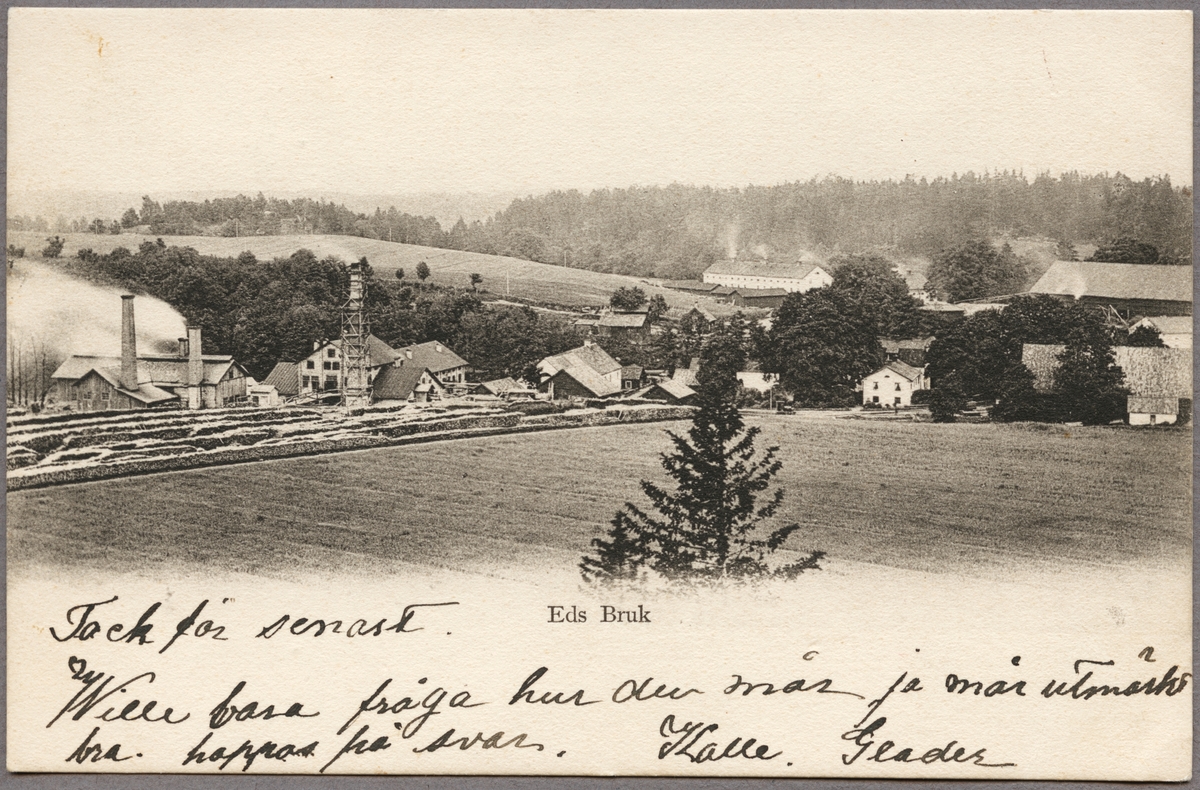 Eds Bruk
Tack för senast.
Wille bara fråga hur du mår ja mår utmärkt
bra. hoppas på svar. Kalle. Glader